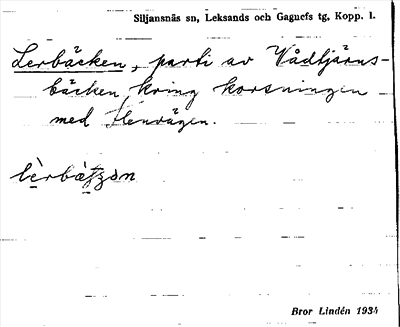 Siljansnäs sn, Leksands och Gagnefs tg, Kopp. l.
Lerbäcken, parti av Vådtjärns-
bäcken, kring korsningen
med Stenvägen.
Bror Lindén 1934